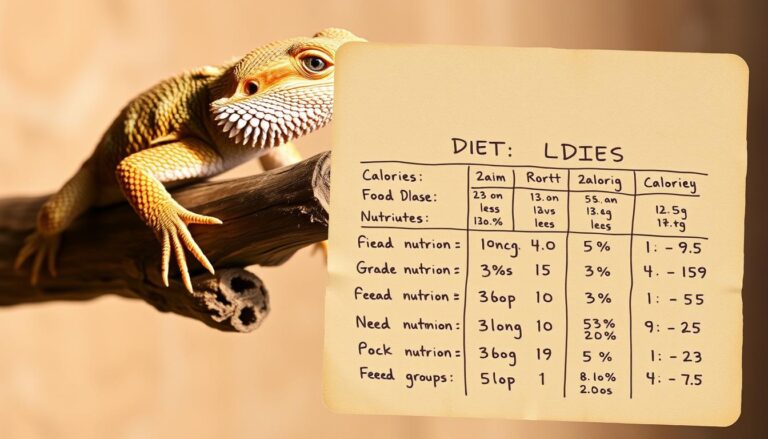 DIET: LDIES
Calories: 2aim Rortt 2alorig Caloriey
Food Dlase: 23 on less 13.on 13vs 5s.an 13.eg 12.5g
Nutriutes: 130.% lees lees 17.tg
Fiead nutrion= 10ncg. 4.0 5% 1: - 9.5
Grade nutrion= 3%s 15 3% 4. - 159
Feead nutrion= 36op 10 3% 1: - 55
Need nutmion= 31ong 10 53% 20% 9: - 25
Pock nutrion= 36og 19 5% 1: - 23
Feeed groups: 51op 1 8.10% 2.0os 4: - 7.5